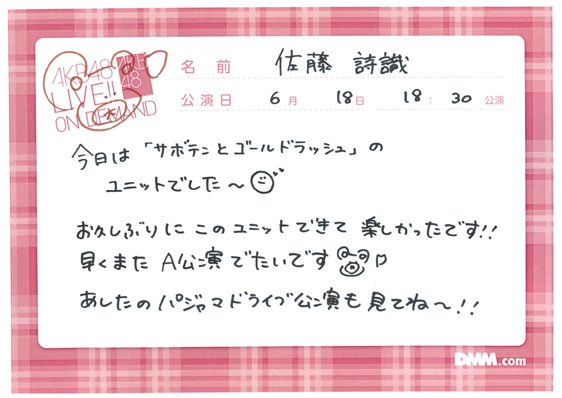 AKB48
LIVE!!
ON DEMAND
AKB
48
名 前 佐藤 詩識
公演日 6月 18日 18:30公演
今日は「サボテンとゴールドラッシュ」の
ユニットでした〜
お久しぶりに このユニットできて 楽しかったです!!
早くまた A公演でたいです
あしたの パジャマドライブ公演も 見てね〜!!
DMM.com